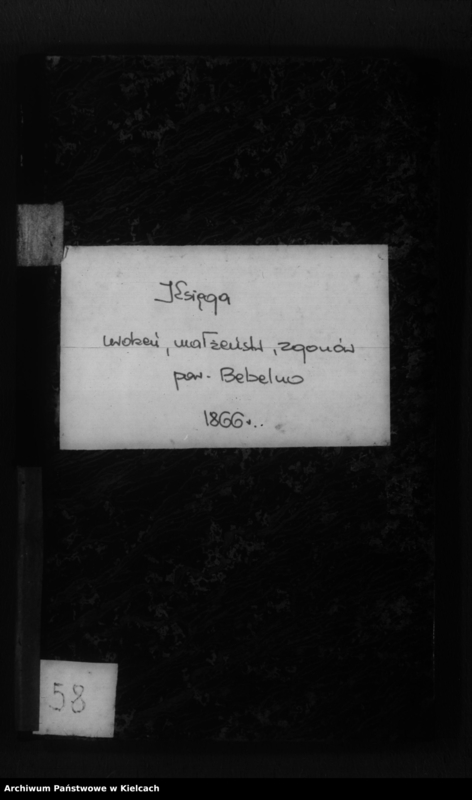 Księga
urodzeń, małżeństw, zgonów
par. Bebelno
1866r.
58
Archiwum Państwowe w Kielcach